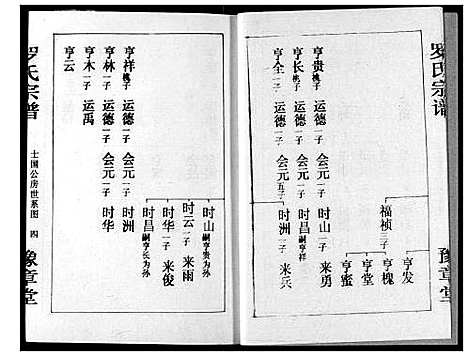 罗氏宗谱
豫章堂
福祯 三子
亨发
亨槐
亨堂
亨蜜
亨贵 桃子 运德 一子 会元 一子 时山 一子 来勇
亨长 桃子 运德 一子 会元 一子 时昌 嗣亨祥
亨全 一子 运德 一子 会元 五子 时洲 一子 来兵
时山 嗣亨贵为孙
时云 二子 来雨
时华 一子 来俊
时昌 嗣亨长为孙
亨祥 桃子 运德 一子 会元 一子 时洲
亨林 一子 运德 一子 会元 一子 时华
亨木 一子 运禹
亨云
罗氏宗谱
士国公房世系图 四
豫章堂